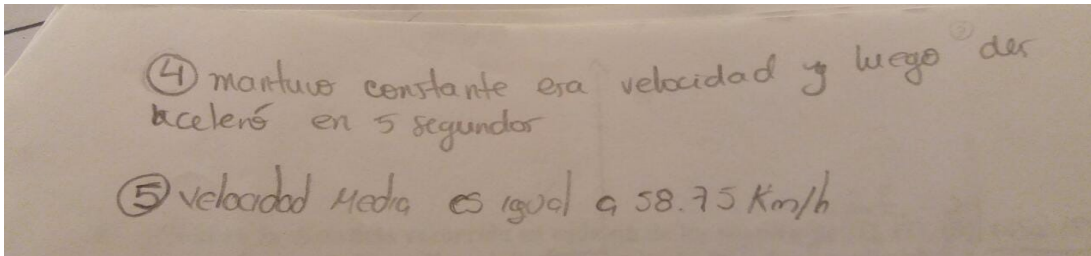 ④ mantuvo constante esa velocidad y luego des
aceleró en 5 segundos
⑤ velocidad Media es igual a 58.75 Km/h